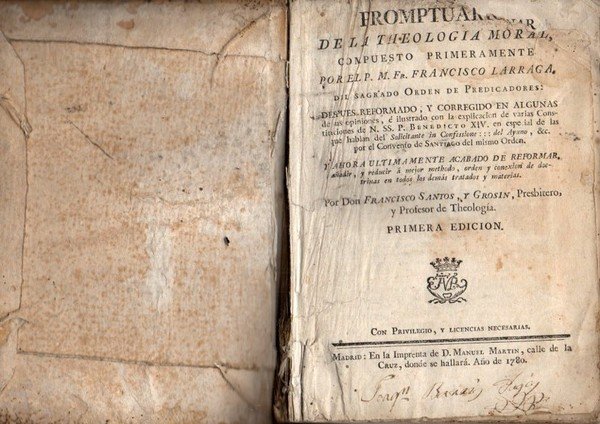 PROMPTUAR
DE LA THEOLOGIA MORAL,
COMPUESTO PRIMERAMENTE
POR EL P. M. FR. FRANCISCO LARRAGA,
DEL SAGRADO ORDEN DE PREDICADORES:
DESPUES REFORMADO, Y CORREGIDO EN ALGUNAS
de sus opiniones, é ilustrado con la explicacion de varias Cons-
tituciones de N. SS. P. BENEDICTO XIV. en especial de las
que hablan del Sollicitante in Confessione::: del Ayuno, &c.
por el Convento de SANTIAGO del mismo Orden.
Y AHORA ULTIMAMENTE ACABADO DE REFORMAR,
añadir, y reducir á mejor methodo, orden y conexion de doc-
trinas en todos los demás tratados y materias.
Por DON FRANCISCO SANTOS, Y GROSIN, Presbitero,
y Profesor de Theología.
PRIMERA EDICION.
CON PRIVILEGIO, Y LICENCIAS NECESARIAS.
MADRID: En la Imprenta de D. MANUEL MARTIN, calle de la
CRUZ, donde se hallará. Año de 1780.